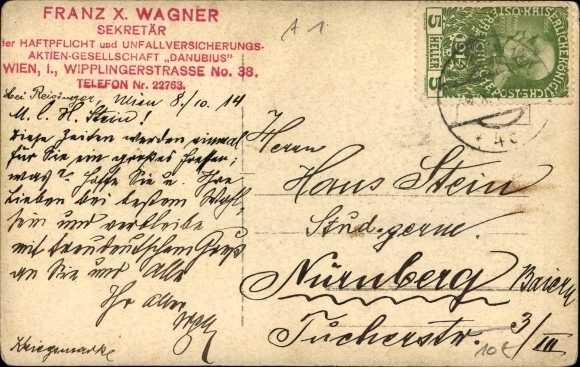 FRANZ X. WAGNER
SEKRETÄR
der HAFTPFLICHT und UNFALLVERSICHERUNGS-
AKTIEN-GESELLSCHAFT „DANUBIUS"
WIEN, I., WIPPLINGERSTRASSE No. 38.
TELEFON Nr. 22763.
A 1
5 HELLER 5
Wien 8./10. 14
M. l. H. Stein!
Diese Zeiten werden einmal
für Sie ein großes Hoffen;
was? Hoffe Sie u. Ihre
Lieben bei bestem Wohl-
sein und verbleibe
mit treudeutschem Gruß
an Sie und Alle
Ihr alter
Kriegsmarke
Herrn
Hans Stein
Stud. germ.
Nürnberg Baiern
Tucherstr. 3/III
10€